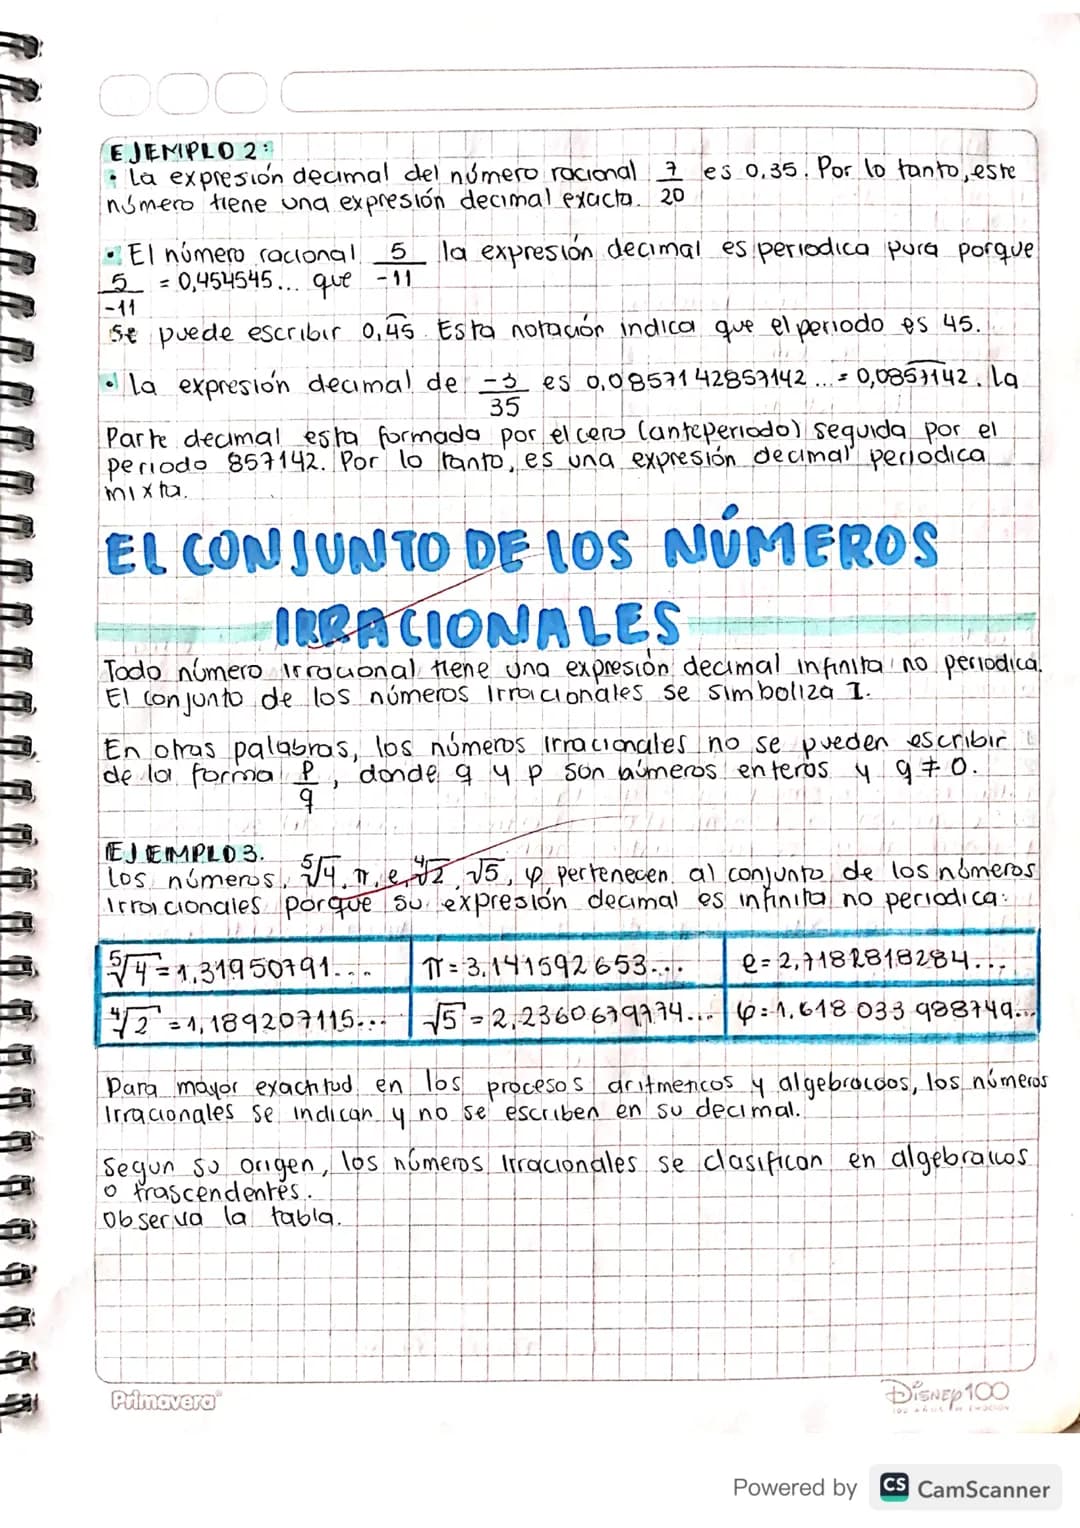 EJEMPLO 2:
• La expresión decimal del número racional 7/20 es 0,35. Por lo tanto, este
número tiene una expresión decimal exacta.
• El número racional 5/-11 la expresión decimal es periodica pura porque
5/-11 = 0,454545... que
se puede escribir 0,4̅5̅. Esta notación indica que el periodo es 45.
• La expresión decimal de -3/35 es 0,0857142857142... = 0,0857142. La
Parte decimal esta formada por el cero (anteperiodo) seguida por el
periodo 857142. Por lo tanto, es una expresión decimal periodica
mixta.
EL CONJUNTO DE LOS NÚMEROS
IRRACIONALES
Todo número irracional tiene una expresión decimal infinita no periodica.
El conjunto de los números Irracionales se simboliza I.
En otras palabras, los números Irracionales no se pueden escribir
de la forma P/q, donde q y p son números enteros y q ≠ 0.
EJEMPLO 3.
Los números, ⁵√4, π, e, ⁴√2, √5, φ pertenecen al conjunto de los números
Irracionales porque su expresión decimal es infinita no periodica:
⁵√4 = 1,31950791... π = 3,141592653... e = 2,7182818284...
⁴√2 = 1,189207115... √5 = 2,2360679774... φ = 1,618 033 988749...
Para mayor exactitud en los procesos aritmeticos y algebraicos, los números
Irracionales se indican y no se escriben en su decimal.
Segun su origen, los números Irracionales se clasifican en algebraicos
o trascendentes.
Observa la tabla.
Primavera
Disney 100
Powered by CS CamScanner